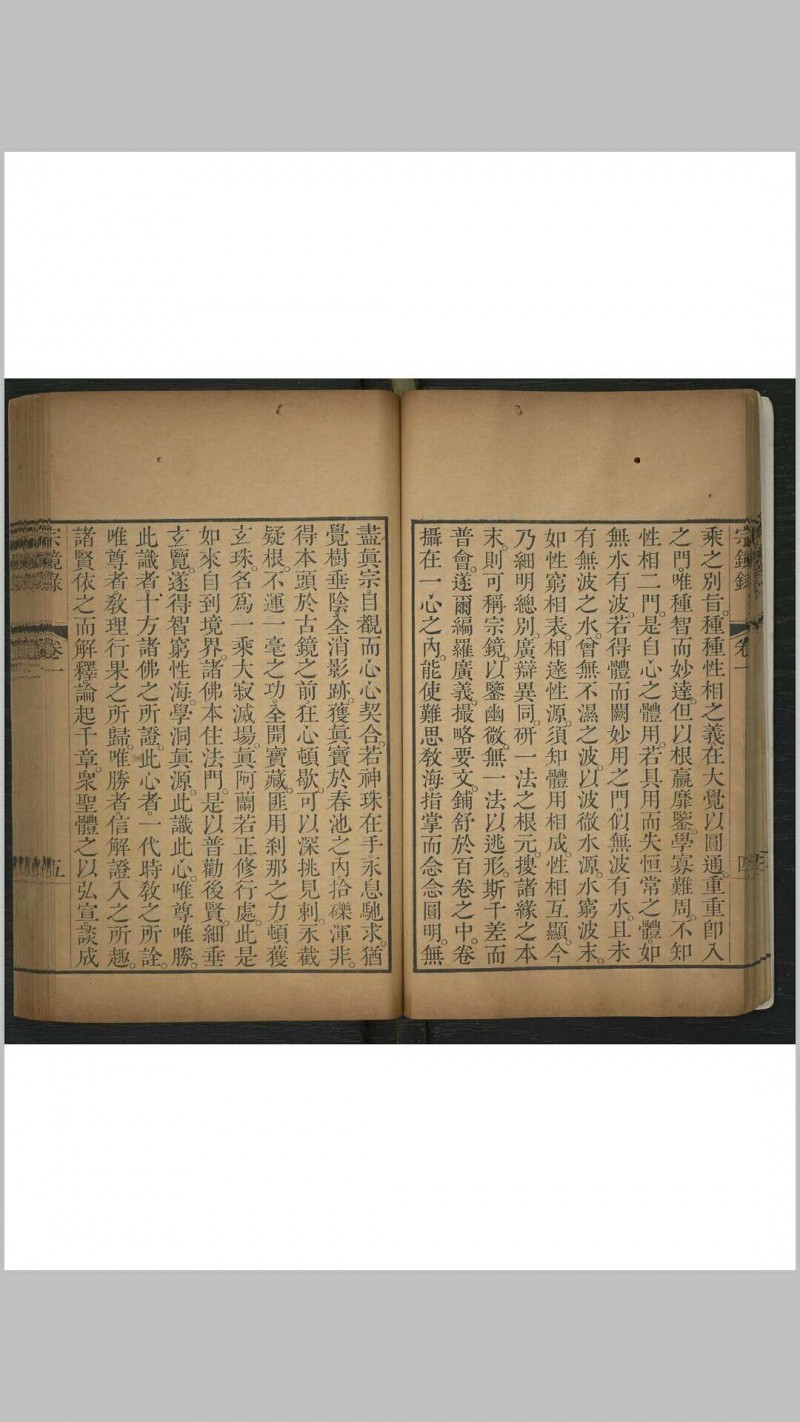 宗鏡錄 卷一 四
乘之別旨。種種性相之義在大覺以圓通。重重卽入
之門。唯種智而妙達。但以根羸靡鑒。學寡難周。不知
性相二門。是自心之體用。若具用而失恒常之體如
無水有波。若得體而闕妙用之門。似無波有水。且未
有無波之水。曾無不濕之波。以波徹水源。水窮波末。
如性窮相表。相達性源。須知體用相成。性相互顯。今
乃細明總別。廣辯異同。研一法之根元。搜諸緣之本
末。則可稱宗鏡。以鑒幽微。無一法以逃形。斯千差而
普會。遂爾編羅廣義。撮略要文。鋪舒於百卷之中。卷
攝在一心之內。能使難思敎海指掌而念念圓明。無
盡眞宗自觀而心心契合。若神珠在手永息馳求。猶
覺樹垂陰全消影跡。獲眞寶於春池之內拾礫渾非。
得本頭於古鏡之前狂心頓歇。可以深挑見刺。永截
疑根。不運一毫之功。全開寶藏。匪用刹那之力頓獲
玄珠。名爲一乘大寂滅場。眞阿蘭若正修行處。此是
如來自到境界。諸佛本住法門。是以普勸後賢。細垂
玄覽。遂得智窮性海。學洞眞源。此識此心。唯尊唯勝。
此識者。十方諸佛之所證。此心者。一代時敎之所詮。
唯尊者敎理行果之所歸。唯勝者信解證入之所趣。
諸賢依之而解釋。論起千章。衆聖體之以弘宣。談成
宗鏡錄 卷一 五